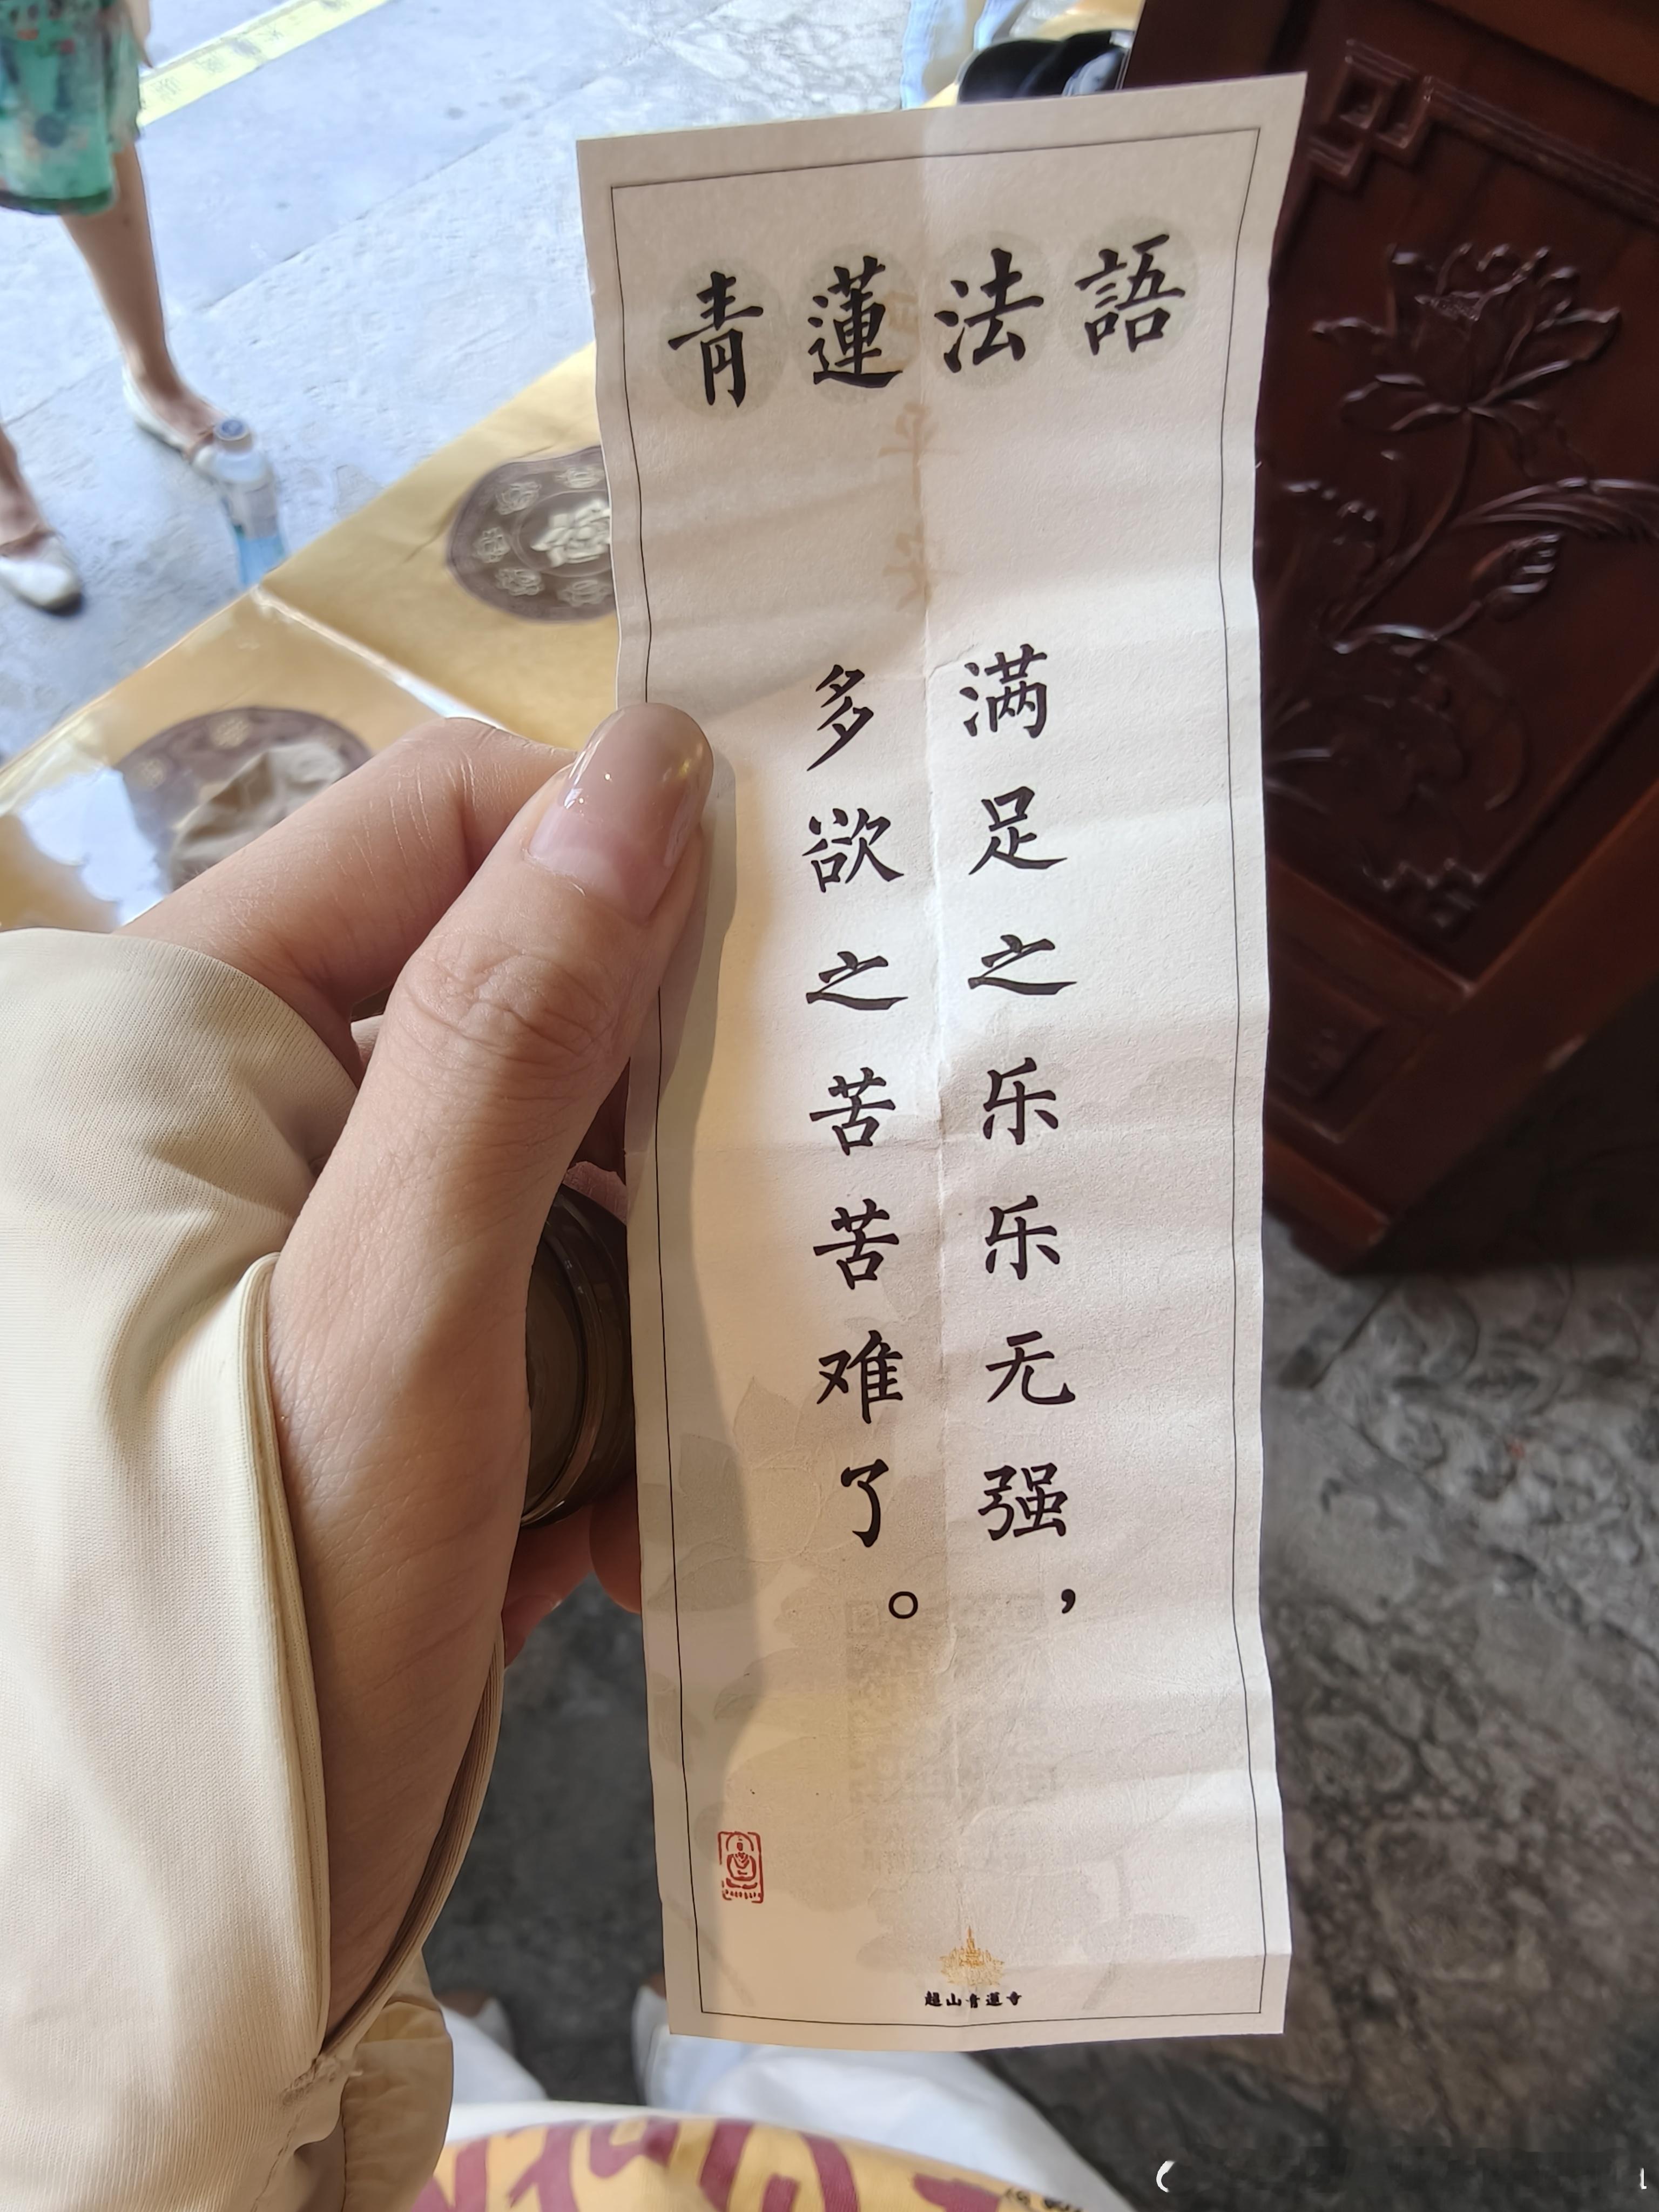 青蓮法語
满足之乐乐无强，
多欲之苦苦难了。
超山青蓮寺